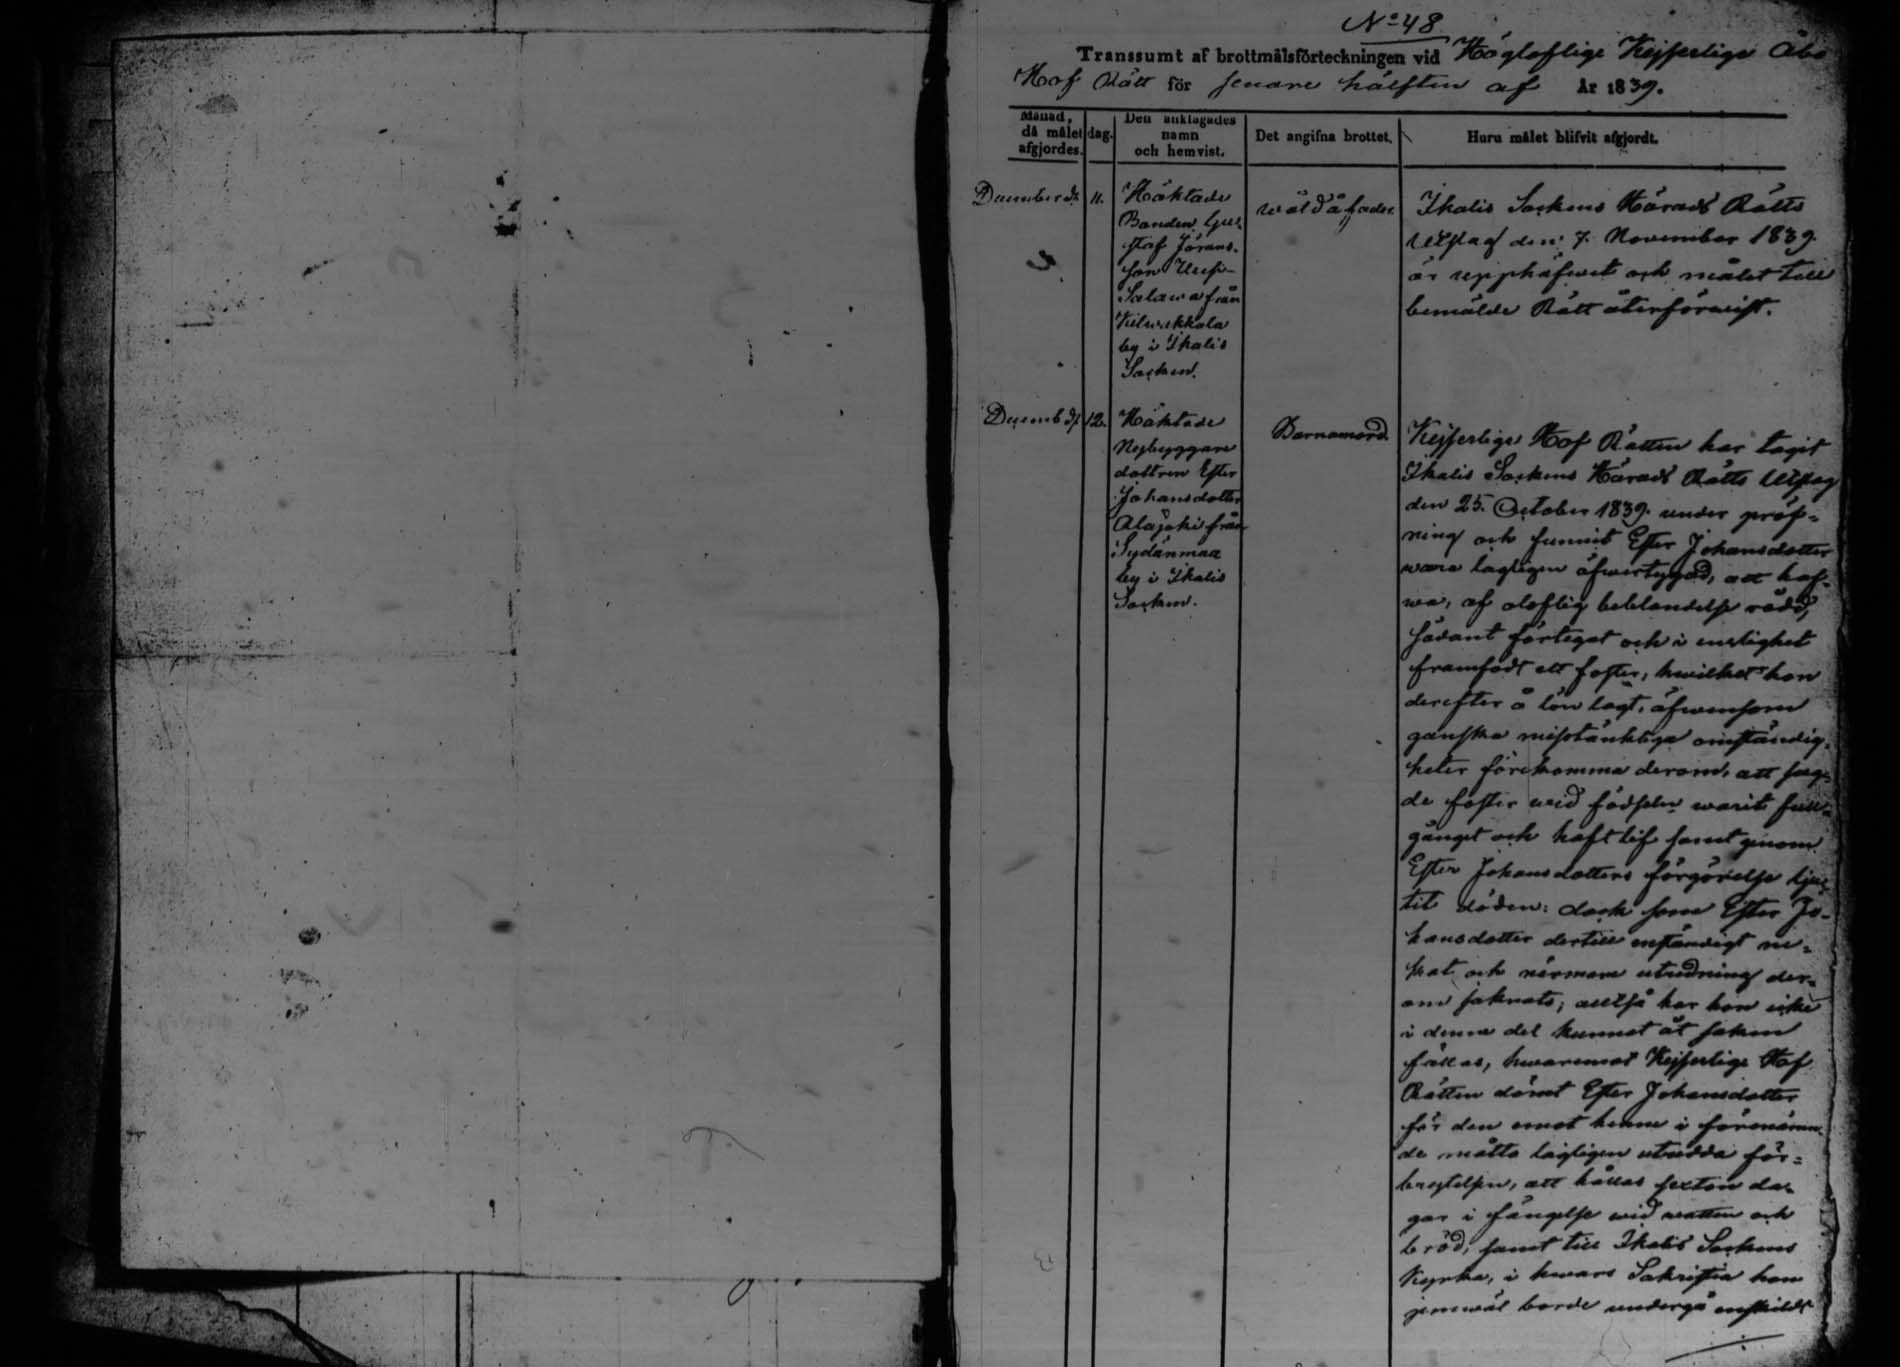 No 48
Transsumt af brottmålsförteckningen vid Högloflige Kejserlige Åbo
Hof Rätt för senare hälften af År 1839.
Månad, då målet afgjordes.
dag.
Den anklagades namn och hemvist.
Det angifna brottet.
Huru målet blifvit afgjordt.
December d. 11.
Häktade
Bonden Gus-
staf Jörans-
son
från
by i Ikalis
Socken.
Ikalis Sockens Härads Rätts
Utslag den 7. November 1839.
är upphäfwet och målet till
bemälde Rätt återförwist.
Decemb d. 12.
Häktade
Nybyggare
dottren Ester
Johansdotter
Alajoki från
Sydänmaa
by i Ikalis
Socken.
Barnamord.
Kejserlige Hof Rätten har tagit
Ikalis Sockens Härads Rätts Utslag
den 25. October 1839. under pröf-
ning och funnit Ester Johansdotter
wara lagligen öfwertygad, att haf-
wa, af oloflig beblandelse rådd,
sådant förtegat och i enslighet
framfödt ett foster, hwilket hon
derefter å lön lagt, äfwensom
ganska misstänkliga omständig-
heter förekomma derom, att sag-
de foster wid födseln warit full-
gånget och haft lif samt genom
Ester Johansdotters förgörelse lju-
tit döden: dock som Ester Jo-
hansdotter dertill enständigt ne-
kat och närmare utredning der-
om saknats; alltså har hon icke
i denna del kunnat åt saken
fällas, hwaremot Kejserlige Hof
Rätten dömt Ester Johansdotter
för den emot henne i förenämn-
de måtto lagligen utredda för-
brytelsen, att hållas sexton da-
gar i fängelse wid watten och
bröd, samt till Ikalis Sockens
Kyrka, i hwars Sakristia hon
jemwäl borde undergå enskildt